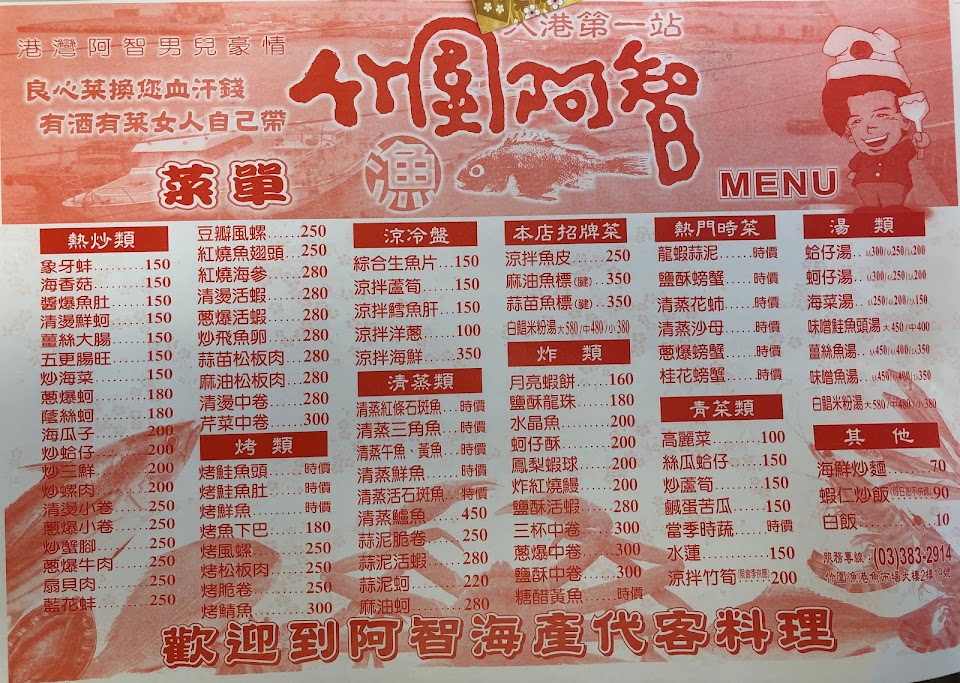 入港第一站
港灣阿智男兒豪情
良心菜換您血汗錢
有酒有菜女人自己帶
竹圍阿智
漁
菜單
MENU
熱炒類
象牙蚌.........150
海香菇.........150
醬爆魚肚......150
清燙鮮蚵......150
薑絲大腸......150
五更腸旺......150
炒海菜.........150
蔥爆蚵.........180
蔭絲蚵.........180
海瓜子.........200
炒蛤仔.........200
炒三鮮.........200
炒螺肉.........200
清燙小卷......250
蔥爆小卷......250
炒蟹腳.........250
蔥爆牛肉......250
扇貝肉.........250
藍花蚌.........250
豆瓣風螺......250
紅燒魚翅頭...250
紅燒海參......280
清燙活蝦......280
蔥爆活蝦......280
炒飛魚卵......280
蒜苗松板肉...280
麻油松板肉...280
清燙中卷......280
芹菜中卷......300
烤類
烤鮭魚頭......時價
烤鮭魚肚......時價
烤鮮魚.........時價
烤魚下巴......180
烤風螺.........250
烤松板肉......250
烤脆卷.........250
烤鯖魚.........300
涼冷盤
綜合生魚片...150
涼拌蘆筍......150
涼拌鱈魚肝...150
涼拌洋蔥......100
涼拌海鮮......350
清蒸類
清蒸紅條石斑魚...時價
清蒸三角魚......時價
清蒸午魚、黃魚...時價
清蒸鮮魚.........時價
清蒸活石斑魚...特價
清蒸鱸魚.........450
蒜泥脆卷.........250
蒜泥活蝦.........280
蒜泥蚵............220
麻油蚵............280
本店招牌菜
涼拌魚皮.........250
麻油魚標(腱)...350
蒜苗魚標(腱)...350
白鯧米粉湯大580/中480/小380
炸類
月亮蝦餅......160
鹽酥龍珠......180
水晶魚.........200
蚵仔酥.........200
鳳梨蝦球......200
炸紅燒鰻......200
鹽酥活蝦......280
三杯中卷......300
蔥爆中卷......300
鹽酥中卷......300
糖醋黃魚......時價
熱門時菜
龍蝦蒜泥......時價
鹽酥螃蟹......時價
清蒸花蛳......時價
清蒸沙母......時價
蔥爆螃蟹......時價
桂花螃蟹......時價
青菜類
高麗菜.........100
絲瓜蛤仔......150
炒蘆筍.........150
鹹蛋苦瓜......150
當季時蔬......時價
水蓮............150
涼拌竹筍(限當季供應)200
湯類
蛤仔湯...大300/中250/小200
蚵仔湯...大300/中250/小200
海菜湯...大250/中200/小150
味噌鮭魚頭湯 大450/中400
薑絲魚湯...大450/中400/小350
味噌魚湯...大450/中400/小350
白鯧米粉湯大580/中480/小380
其他
海鮮炒麵............70
蝦仁炒飯 90
白飯..................10
服務專線:(03)383-2914
竹圍漁港魚市場大樓2樓19號
歡迎到阿智海產代客料理